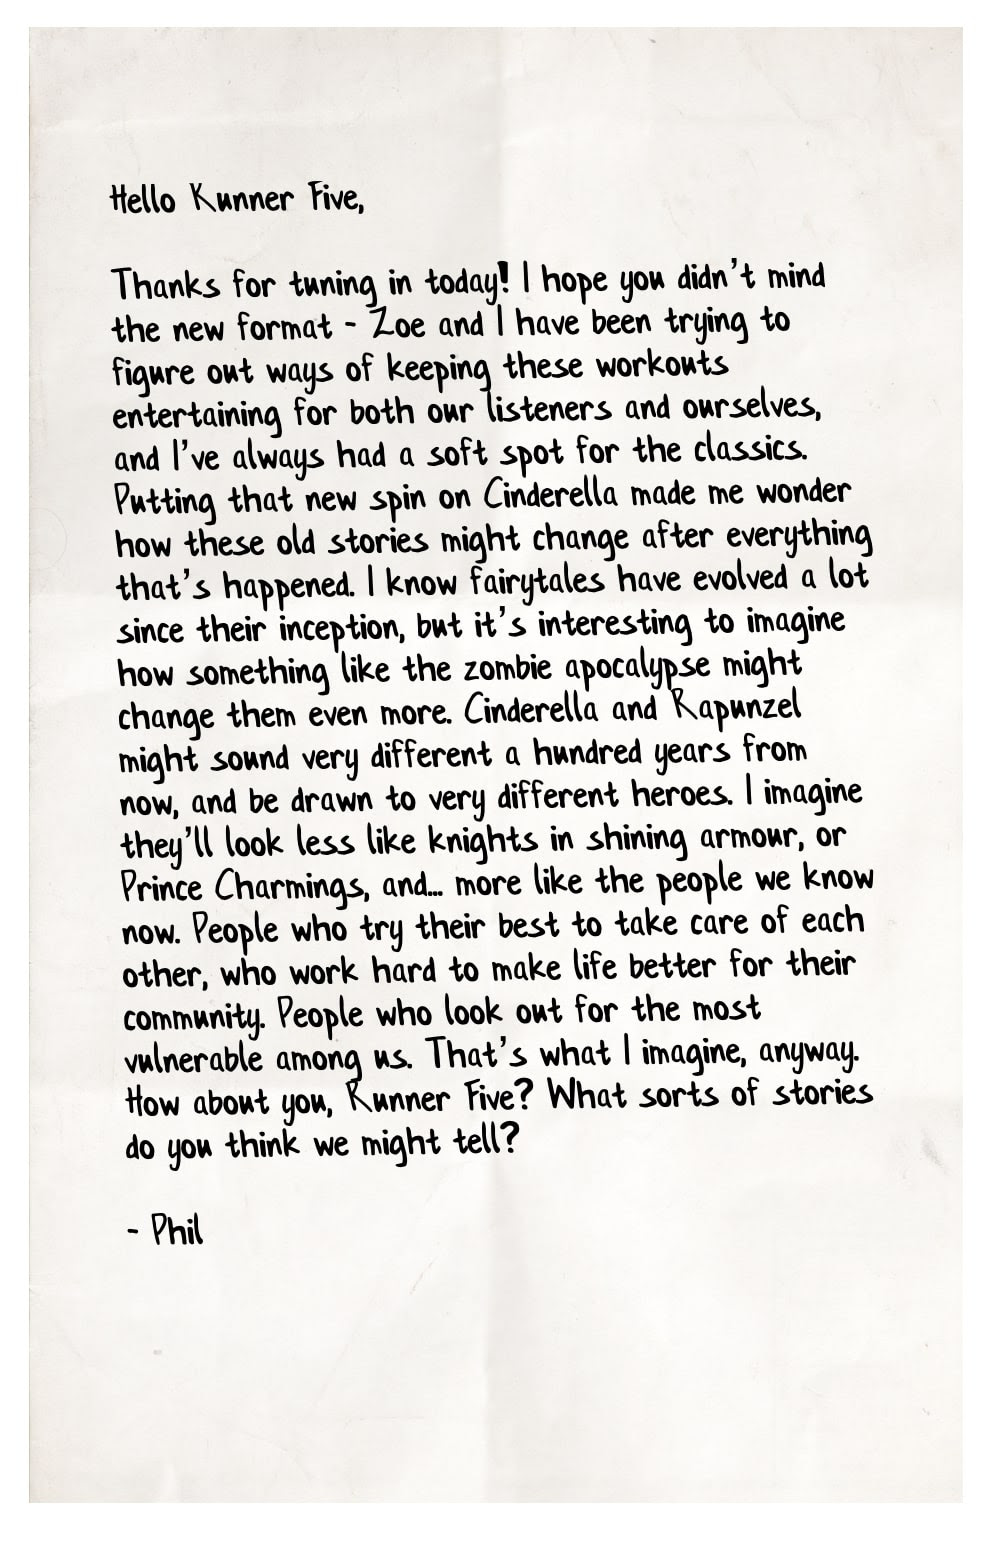 Hello Runner Five,
Thanks for tuning in today! I hope you didn't mind
the new format - Zoe and I have been trying to
figure out ways of keeping these workouts
entertaining for both our listeners and ourselves,
and I've always had a soft spot for the classics.
Putting that new spin on Cinderella made me wonder
how these old stories might change after everything
that's happened. I know fairytales have evolved a lot
since their inception, but it's interesting to imagine
how something like the zombie apocalypse might
change them even more. Cinderella and Rapunzel
might sound very different a hundred years from
now, and be drawn to very different heroes. I imagine
they'll look less like knights in shining armour, or
Prince Charmings, and... more like the people we know
now. People who try their best to take care of each
other, who work hard to make life better for their
community. People who look out for the most
vulnerable among us. That's what I imagine, anyway.
How about you, Runner Five? What sorts of stories
do you think we might tell?
- Phil